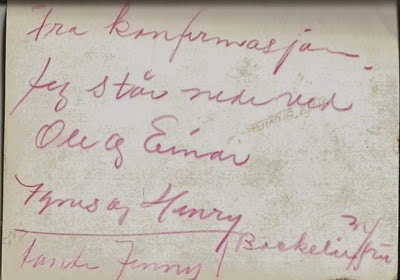 Fra konfirmasjon.
Jeg står nede ved
Ole og Einar
og Henry
tante Jenny
m/ fru